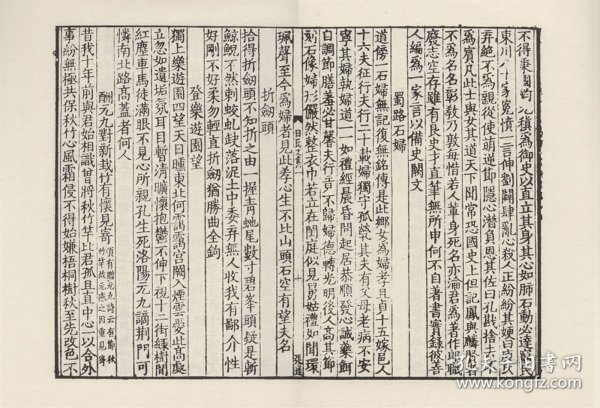 不得秉國鈞元稹為御史以直立其身其心如肺石動必達窮民
東川八十家冤憤一言伸劉闢肆亂心殺人正紛紛其嫂曰庾氏
弃絕不為親從史萌逆節隱心潛負恩其佐曰孔戡捨去不
為賓凡此士與女其道天下聞常恐國史上但記鳳與麟賢者
不為名名彰教乃敦每惜若人輩身死名亦淪君為著作郎職
廢志空存雖有良史才直筆無所申何不自著書實錄彼善
人編為一家言以備史闕文
蜀路石婦
道傍一石婦無記復無銘傳是此鄉女為婦孝且貞十五嫁邑人
十六夫征行夫行二十載婦獨守孤煢其夫有父母老病不安
寧其婦執婦道一一如禮經晨昏問起居恭順發心誠藥餌
自調節膳羞必甘馨夫行竟不歸婦德轉光明後人高其節
刻石像婦形儼然整衣巾若立在閨庭似見舅姑禮如聞環
珮聲至今為婦者見此孝心生不比山頭石空有望夫名
折劒頭
拾得折劒頭不知折之由一握青虵尾數寸碧峯頭疑是斬
鯨鯢不然刺蛟虬缺落泥土中委弃無人收我有鄙介性
好剛不好柔勿輕直折劒猶勝曲全鉤
登樂遊園望
獨上樂遊園四望天日曛東北何靄靄宮闕入煙雲愛此高處
立忽如遺垢氛耳目暫清曠懷抱鬱不伸下視十二街綠樹間
紅塵車馬徒滿眼不見心所親孔生死洛陽元九謫荆門可
憐南北路高蓋者何人
酬元九對新栽竹有懷見寄
頃有贈元九詩云有節秋
竹竿故元感之因重見寄
昔我十年前與君始相識曾將秋竹竿比君孤且直中心一以合外
事紛無極共保秋竹心風霜侵不得始嫌梧桐樹秋至先改色不
孔夫子旧书网
www.kongfz.com